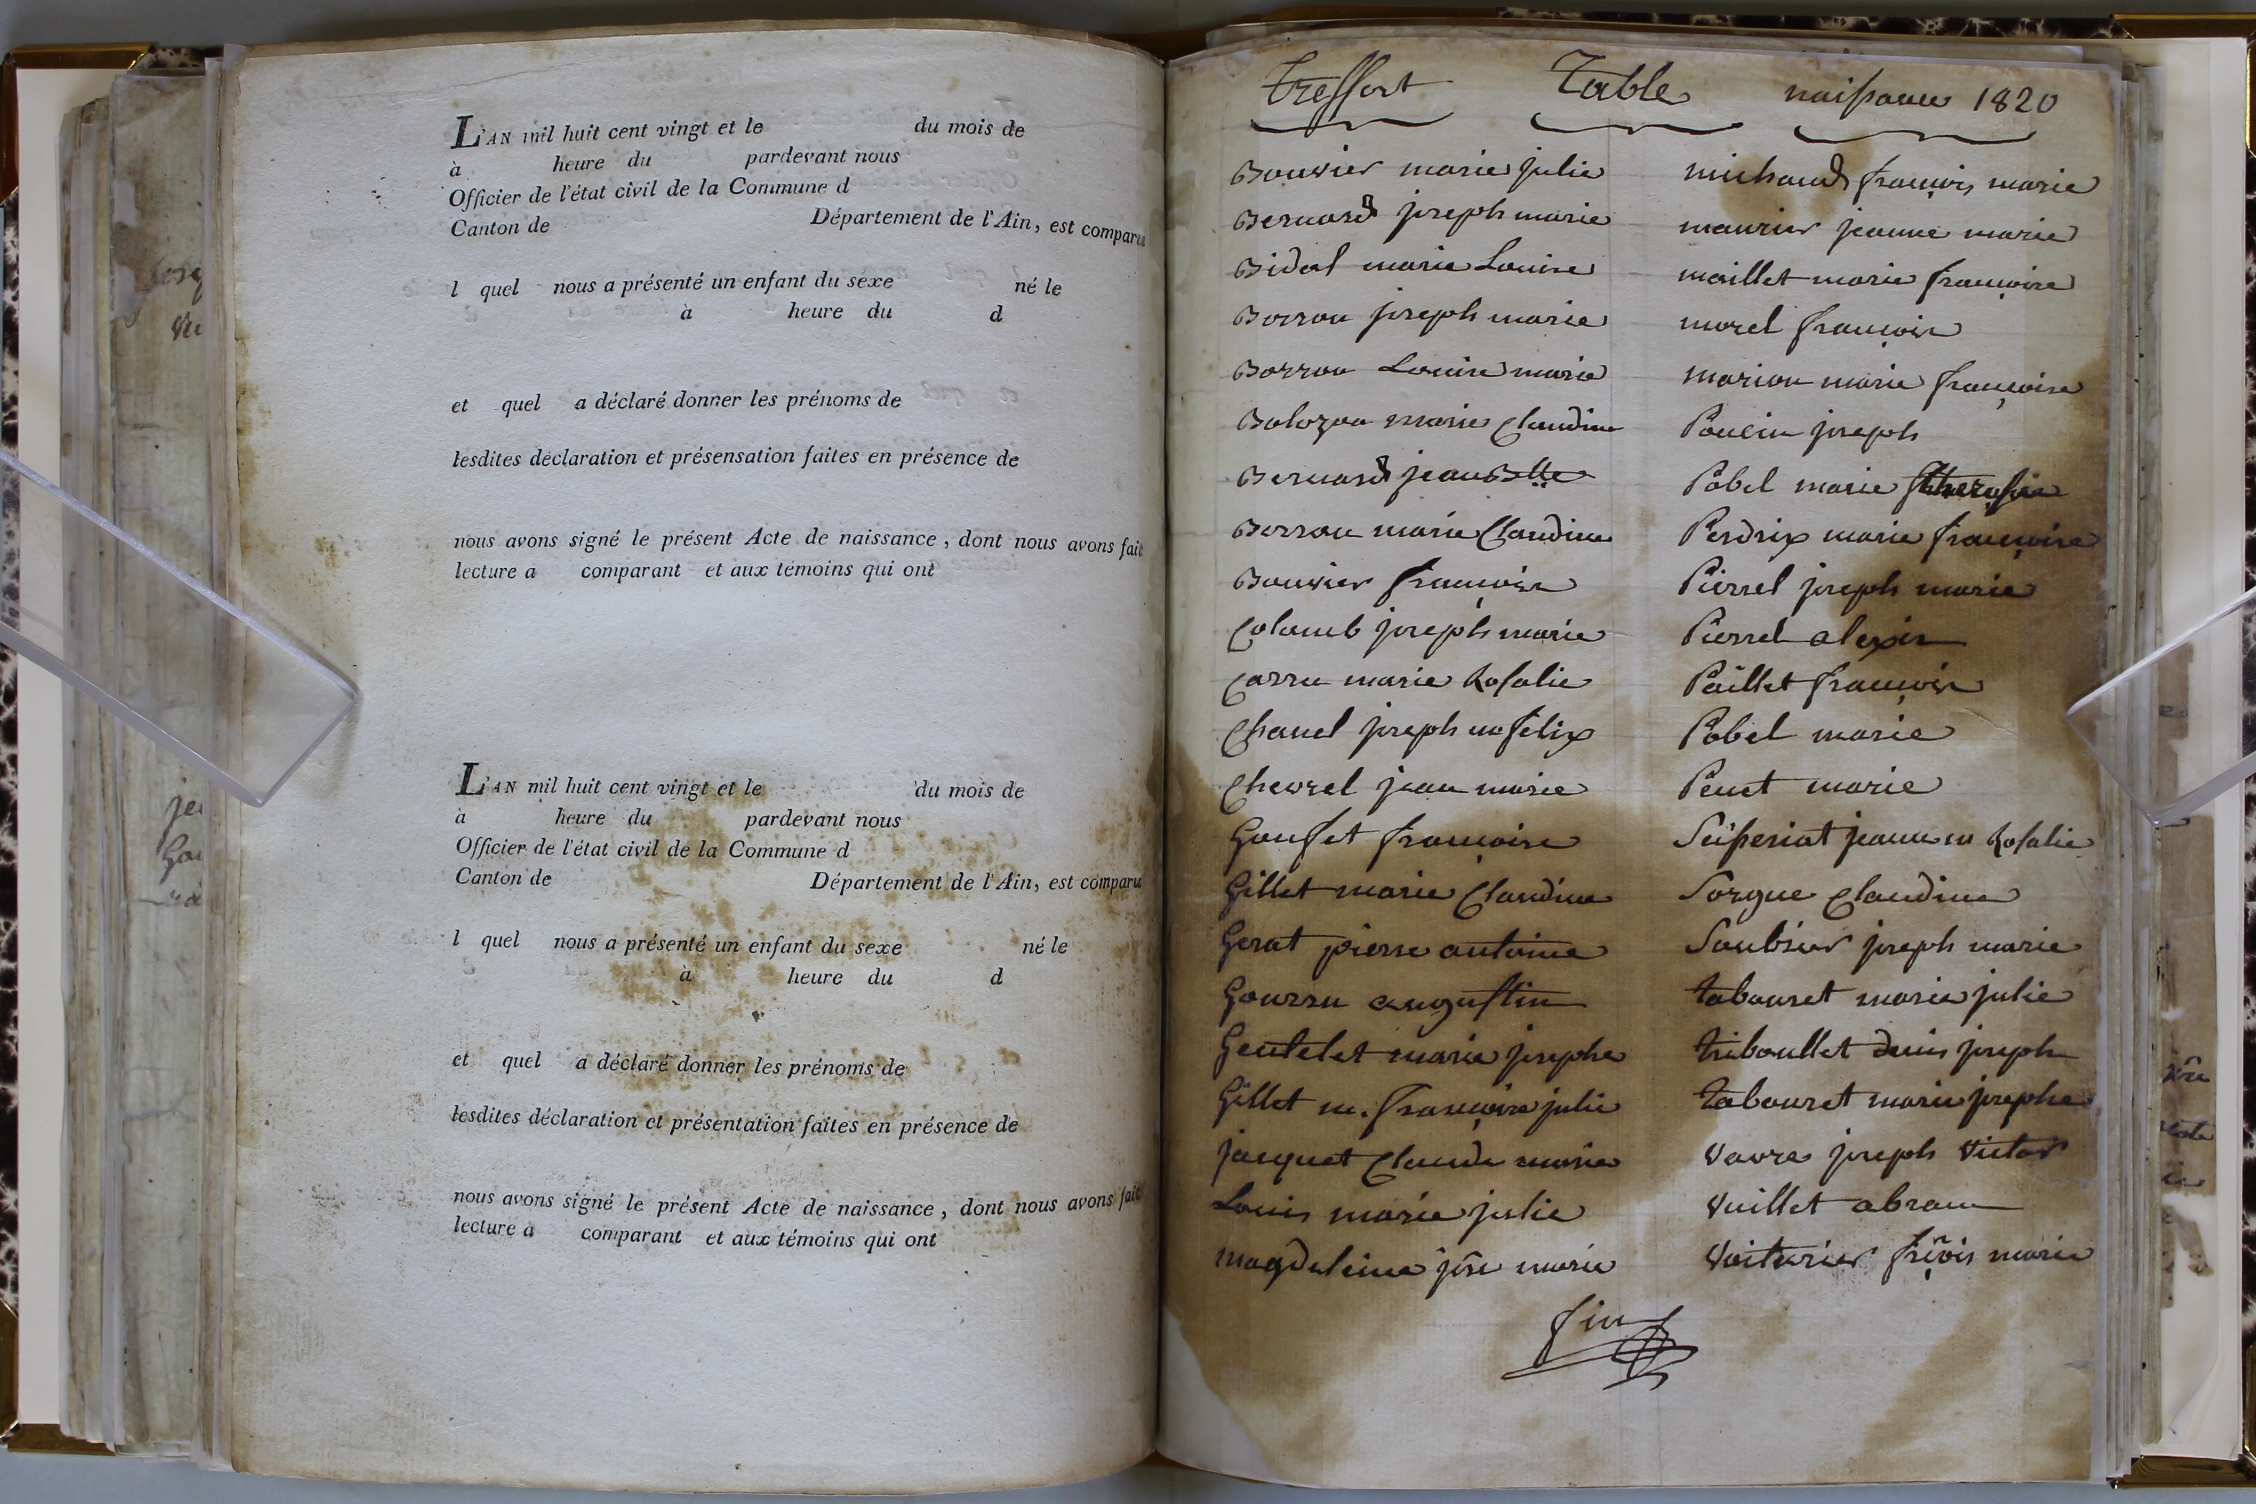 L'AN mil huit cent vingt et le du mois de
à heure du pardevant nous
Officier de l'état civil de la Commune d
Canton de Département de l'Ain, est comparu
l quel nous a présenté un enfant du sexe né le
à heure du d
et quel a déclaré donner les prénoms de
lesdites déclaration et présensation faites en présence de
nous avons signé le présent Acte de naissance, dont nous avons fait
lecture a comparant et aux témoins qui ont
L'AN mil huit cent vingt et le du mois de
à heure du pardevant nous
Officier de l'état civil de la Commune d
Canton de Département de l'Ain, est comparu
l quel nous a présenté un enfant du sexe né le
à heure du d
et quel a déclaré donner les prénoms de
lesdites déclaration et présentation faites en présence de
nous avons signé le présent Acte de naissance, dont nous avons fait
lecture a comparant et aux témoins qui ont
Treffort Table naissance 1820
Bouvier marie julie
Bernard joseph marie
Bidal marie Louise
Borron joseph marie
Borron Louise marie
Bolozon marie Claudine
Bernard jean Btte
Borron marie Claudine
Bouvier françoise
Colomb joseph marie
Carru marie Rosalie
Chanel joseph m felix
Chevrel jean marie
Gonset françoise
Gillet marie Claudine
Gerat pierre antoine
Gourru augustin
Gentelet marie josephe
Gillet m. françoise julie
jacquet Claude marie
Louis marie julie
magdeleine jne marie
michaud françois marie
maurier jeanne marie
maillet marie françoise
morel françoise
marion marie françoise
Poncin joseph
Pobel marie
Perdrix marie françoise
Pierrel joseph marie
Pierrel alexis
Paillet françois
Pobel marie
Penet marie
Seisseriat jeanne m Rosalie
Sorgue Claudine
Soubrier joseph marie
tabouret marie julie
triboullet denis joseph
tabouret marie josephe
Vavre joseph Victor
Vuillet abram
Voiturier frçois marie
fin